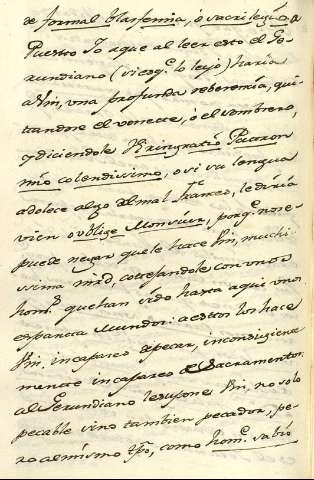 de formal blasfemia, ó sacrilegio. a
Puesto Yo aque al leer esto el Ge-
rundiano (si es q.e lo leyó) haria
a Vm, una profunda reberencia, qui-
tandose el vonete, ó el sombrero,
y diciendole Ringratió Patron
mio colendissimo, o si su lengua
adolece algo del mal Frances, le diria
vien oublige Monsieur, porq.e no se
puede negar que le hace Vm, muchi-
sima mrd, cotejandole con unos
hom.s que han sido hasta aqui unos
espanta Mundos: a estos los hace
Vm. incapaces de pecar, inconsiguiente
mente incapaces de Sacramentos:
al Gerundiano le supone Vm, no solo
pecable sino tambien pecador, pe-
ro al mismo tpo, como hom.e sabio